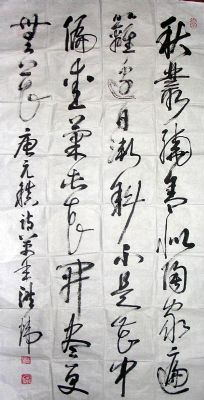 秋叢繞舍似陶家遍
籬邊日漸斜不是花中
偏愛菊此花開盡更
無花 唐元稹詩菊花